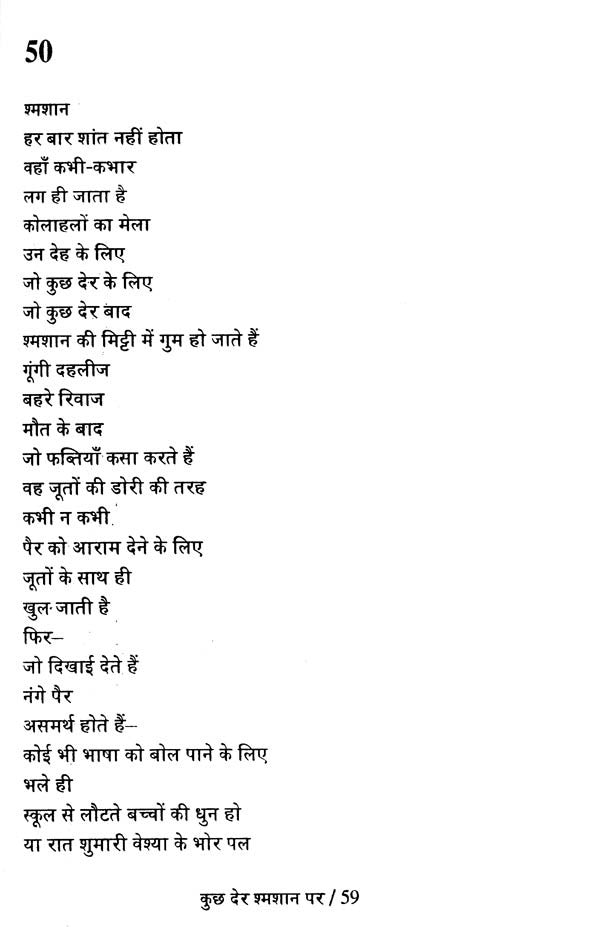 50
श्मशान
हर बार शांत नहीं होता
वहाँ कभी-कभार
लग ही जाता है
कोलाहलों का मेला
उन देह के लिए
जो कुछ देर के लिए
जो कुछ देर बाद
श्मशान की मिट्टी में गुम हो जाते हैं
गूंगी दहलीज
बहरे रिवाज
मौत के बाद
जो फब्तियाँ कसा करते हैं
वह जूतों की डोरी की तरह
कभी न कभी
पैर को आराम देने के लिए
जूतों के साथ ही
खुल जाती है
फिर–
जो दिखाई देते हैं
नंगे पैर
असमर्थ होते हैं–
कोई भी भाषा को बोल पाने के लिए
भले ही
स्कूल से लौटते बच्चों की धुन हो
या रात शुमारी वेश्या के भोर पल
कुछ देर श्मशान पर / 59